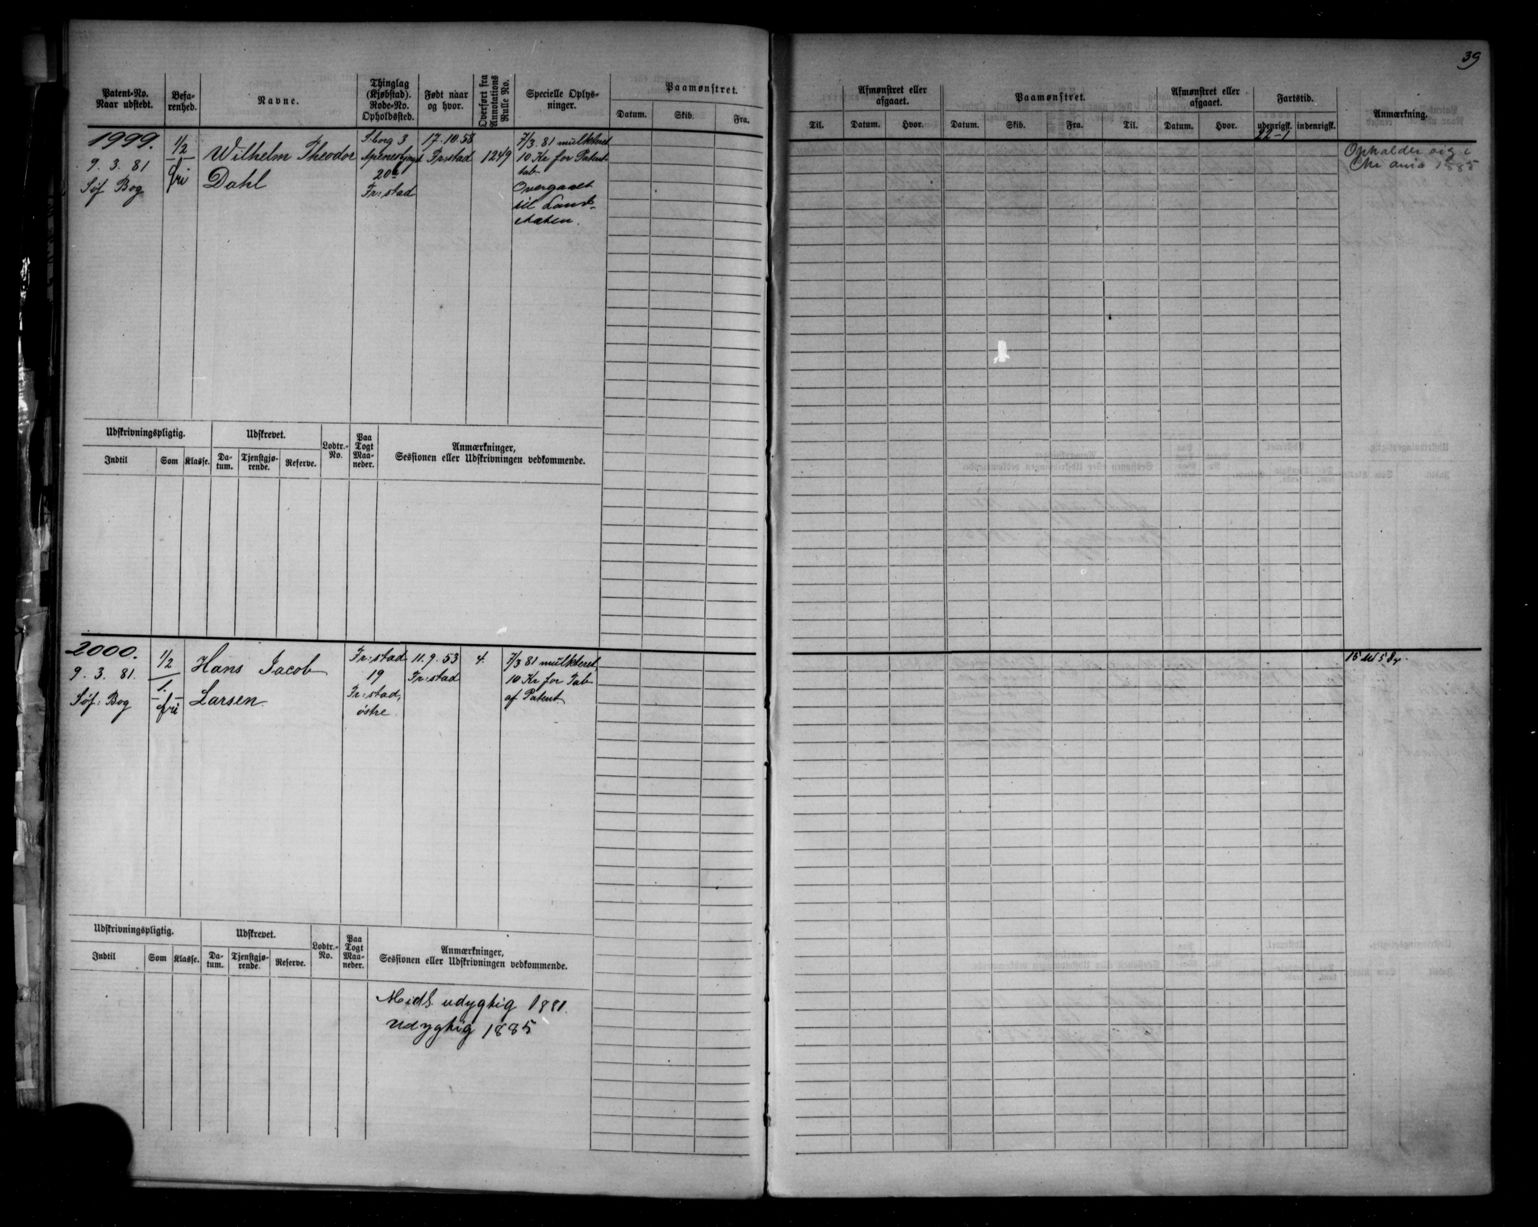 39
Patent-No.
Naar udstedt.
Befa-
renhed.
Navne.
Thinglag
(Kjøbstad).
Rode-No.
Opholdssted.
Født naar
og hvor.
Overført fra
Annotations
Rulle No.
Specielle Oplys-
ninger.
Paamønstret.
Datum. Skib. Fra.
Til.
Afmønstret eller
afgaaet.
Datum. Hvor.
Paamønstret.
Datum. Skib. Fra. Til.
Afmønstret eller
afgaaet.
Datum. Hvor.
Fartstid.
udenrigsk. indenrigsk.
Anmærkning.
1999.
9. 3. 81
Søf. Bog
1/2
fri
Wilhelm Theodor
Dahl
S.borg 3
20
Fr:stad
17. 10. 58
Fr:stad
1249
7/3. 81 mulkteret
10 Kr for Patent
tab.
Overgaaet
til Land-
etaten.
22-1
Opholder sig i
1885
Udskrivningspligtig.
Indtil Som Klasse.
Udskrevet.
Da-
tum.
Tjenstgjø-
rende.
Reserve.
Lodtr.-
No.
Paa
Togt
Maa-
neder.
Anmærkninger,
Sessionen eller Udskrivningen vedkommende.
2000.
9. 3. 81.
Søf. Bog
1/2
fri
Hans Jacob
Larsen
Fr:stad
19
Fr:stad,
østre.
11. 9. 53
Fr:stad
4.
7/3 81 mulkteret
10 Kr for Tab
af Patent
Udskrivningspligtig.
Indtil Som Klasse.
Udskrevet.
Da-
tum.
Tjenstgjø-
rende.
Reserve.
Lodtr.-
No.
Paa
Togt
Maa-
neder.
Anmærkninger,
Sessionen eller Udskrivningen vedkommende.
Midl. udygtig 1881.
Udygtig 1885